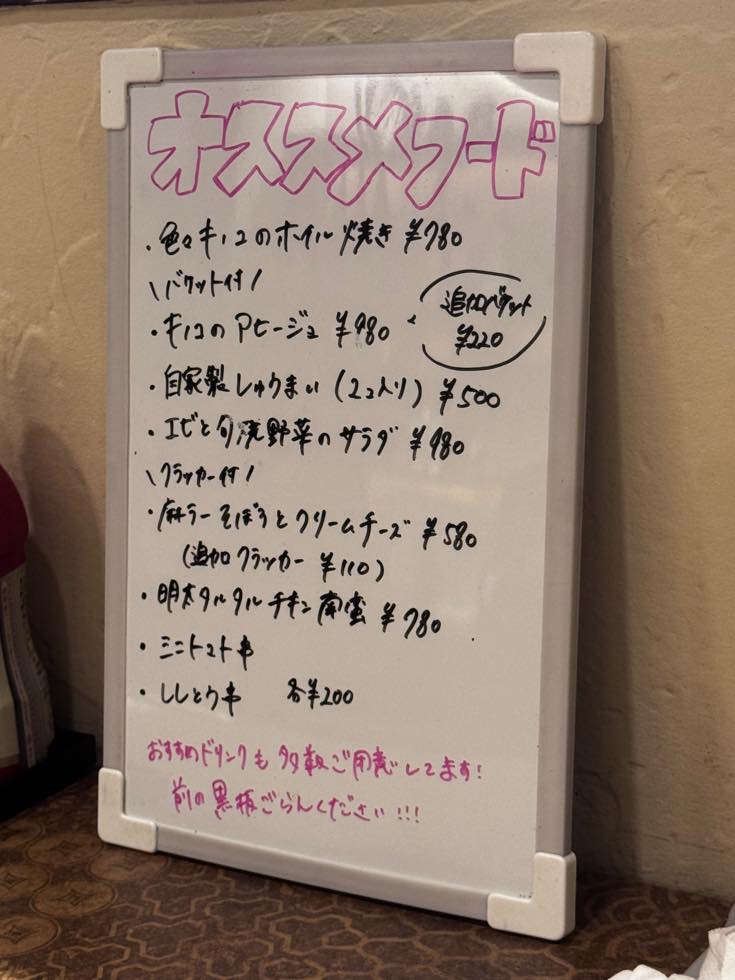 オススメフード
・色々キノコのホイル焼き ¥780
\バケット付/
・キノコのアヒージョ ¥980
・追加バケット
¥220
・自家製しゅうまい (2コ入り) ¥500
・エビと旬野菜のサラダ ¥980
\クラッカー付/
・麻ラーそぼろとクリームチーズ ¥580
(追加クラッカー ¥110)
・明太タルタルチキン南蛮 ¥780
・ミニトマト串
・ししとう串 各¥200
おすすめドリンクも多数ご用意してます!
前の黒板ごらんください!!!